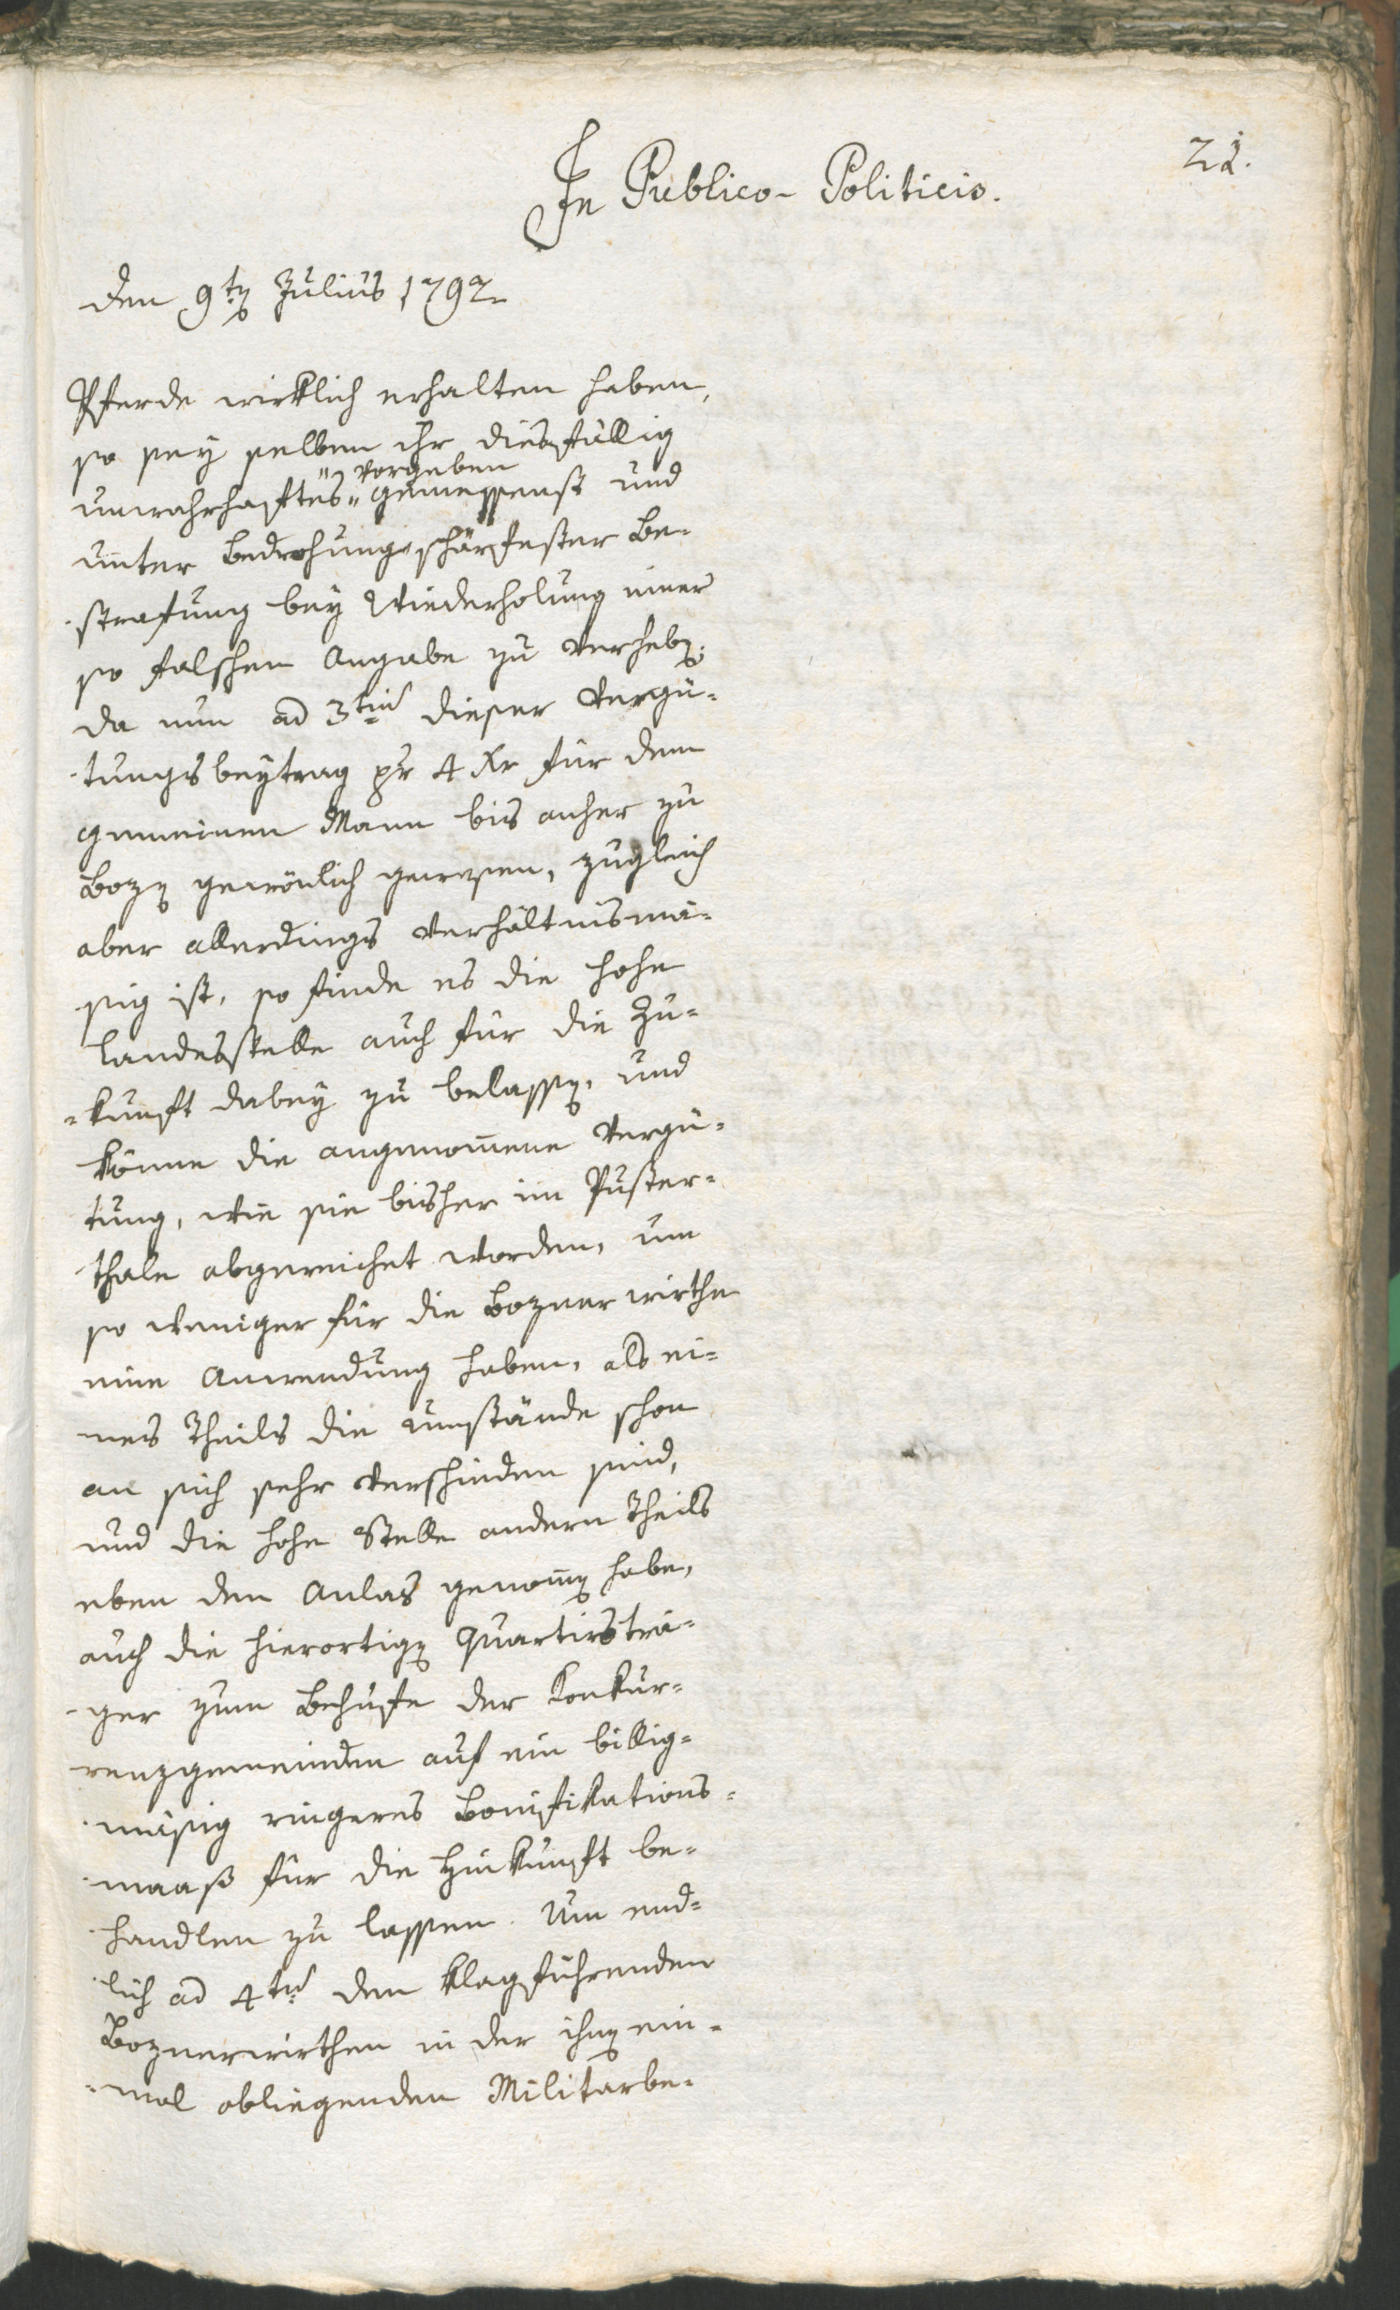 21.
In Publico-Politicis.
den 9ten Julius 1792
Pferde wirklich erhalten haben,
so sey selben ihr diesfällig
"vorgeben
unwahrhaftes" gemessenst und
unter Bedrohung schärfester Be-
strafung bey Wiederholung einer
so falschen Angabe zu verheben.
da nun ad 3tium dieser Vergü-
tungsbeytrag pr 4 Xr für den
gemeinen Mann bis anher zu
Bozen gewönlich gewesen, zugleich
aber allerdings verhältnismä-
sig ist, so finde es die hohe
Landesstelle auch für die Zu-
kunft dabey zu belassen, und
könne die angenommene Vergü-
tung, wie sie bisher im Puster-
thale abgereichet worden, um
so weniger für die Bozner wirthe
eine Anwendung haben, als ei-
nes Theils die Umstände schon
an sich sehr verschieden sind,
und die hohe Stelle andern Theils
eben den Anlas genommen habe,
auch die hierortigen Quartirsträ-
ger zum Behufe der Konkur-
renzgemeinden auf ein billig-
mäsig ringeres Bonifikations-
maaß für die Hinkunft be-
handlen zu lassen. Um end-
lich ad 4tum den klagführenden
Boznerwirthen in der ihnen ein-
mal obliegenden Militarbe-